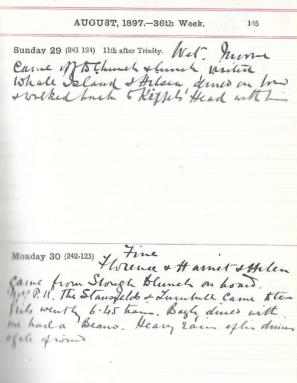 AUGUST, 1897.—36th Week. 145
Sunday 29 (241-124) 11th after Trinity. Wet.
came off to Church & lunch visited
Whale Island & Helen dined on board
& walked back to Keppels Head with him
Monday 30 (242-123) Fine
Florence & Harriet & Helen
came from Slough to lunch on board.
The Stansfelds & Turnbull came to tea
girls went by 6.45 train. dined with
me had a Beano. Heavy rain after dinner